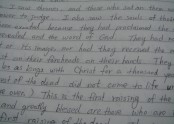 I saw thrones, and those who sat on them
power to judge. I also saw the souls of those
executed because they had proclaimed the
revealed and the word of God. They had
or its image, nor had they received the
on their foreheads or their hands. They
as kings with Christ for a thousand
of the dead did not come to life
over.) This is the first raising of the
and greatly blessed are those who are
first raising of the